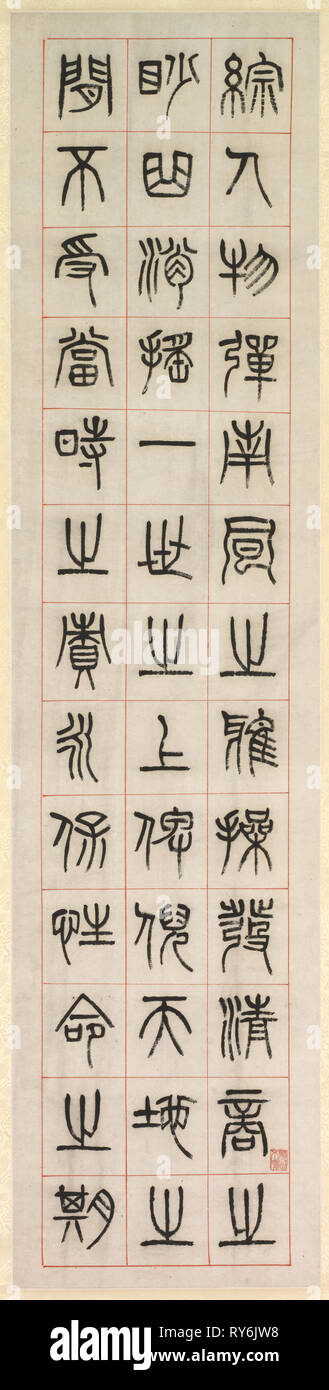 綜人物彈南風之雅操發清商之
眇曲消搖一世之上俾倪天地之
間不受當時之責永保性命之期
alamy
alamy
Image ID: RY6JW8
www.alamy.com